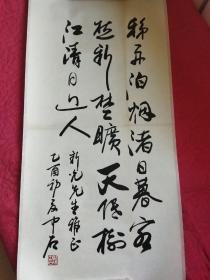 移舟泊烟渚日暮客
愁新埜曠天低樹
江清月近人
新光先生雅正
乙酉初夏中石